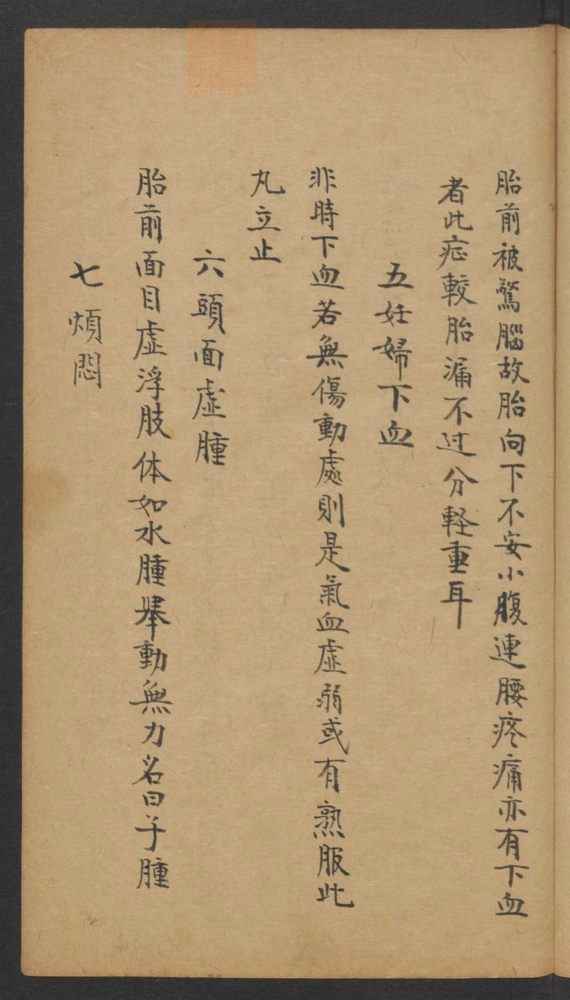 胎前被驚腦故胎向下不安小腹連腰疼痛亦有下血
者此症較胎漏不过分軽重耳
五妊婦下血
非時下血若無傷動處則是氣血虛弱或有熟服此
丸立止
六頭面虛腫
胎前面目虛浮肢体如水腫舉動無力名曰子腫
七煩悶